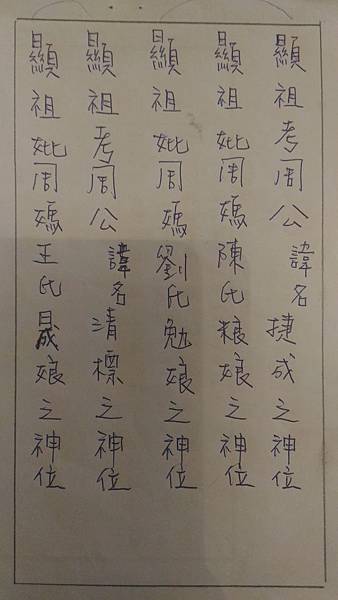 顯祖考周公諱名捷成之神位
顯祖妣周媽陳氏粮娘之神位
顯祖妣周媽劉氏勉娘之神位
顯祖考周公諱名清標之神位
顯祖妣周媽王氏晟娘之神位